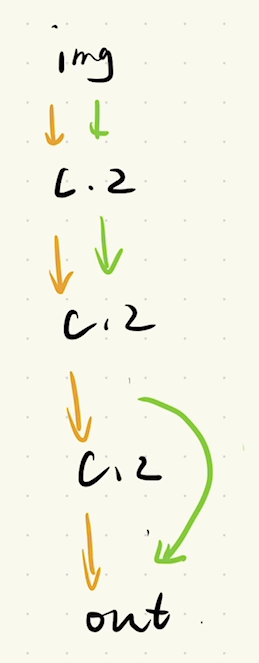 img
C.2
C.2
C.2
out